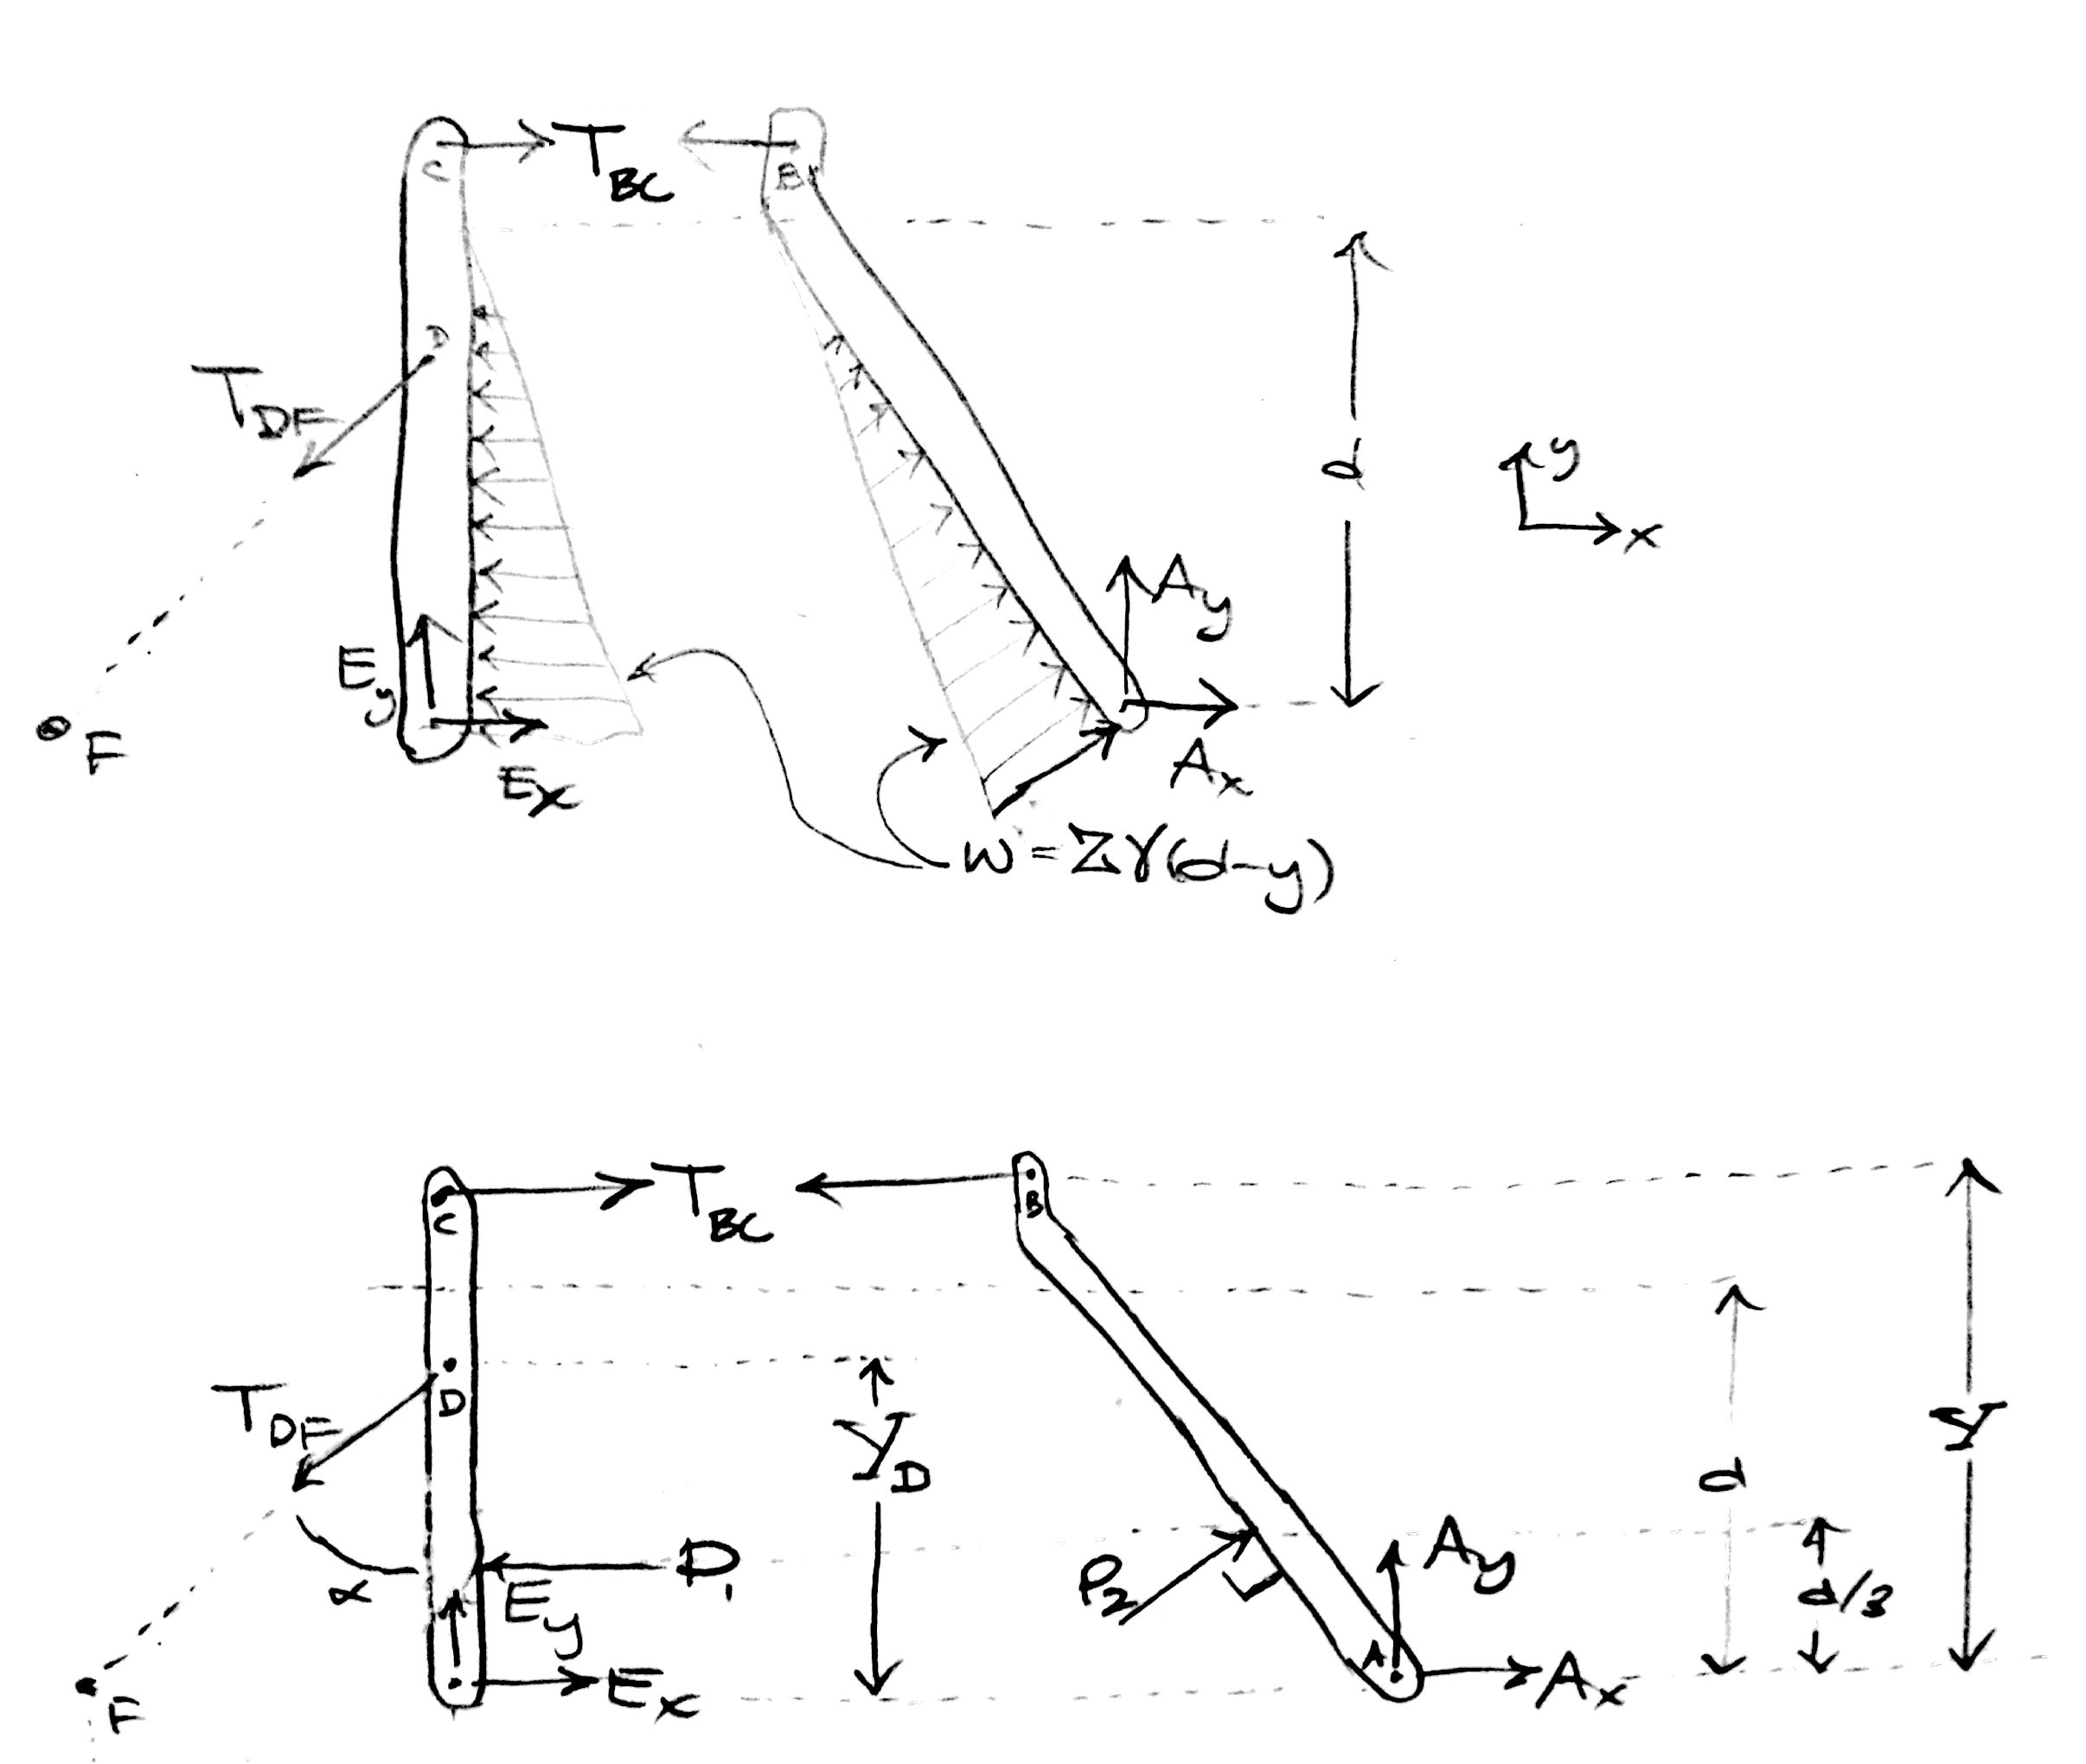 C
T_BC
B
D
T_DF
d
y
x
A_y
E_y
F
E_x
A_x
w = Zγ(d-y)
C
T_BC
B
D
T_DF
y_D
d
Y
α
P_1
E_y
P_2
A_y
d/3
A
A_x
E_x
F